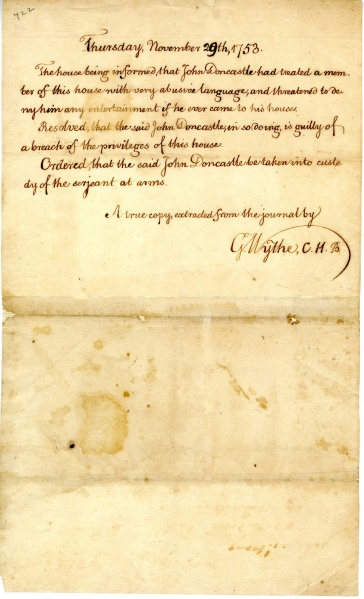 422
Thursday, November 29th, 1753.
The house being informed, that John Doncastle had treated a mem-
ber of this house with very abusive language, and threatened to de-
ny him any entertainment if he ever came to his house,
Resolved, that the said John Doncastle, in so doing, is guilty of
a breach of the privileges of this house.
Ordered, that the said John Doncastle be taken into custo
dy of the serjeant at arms.
A true copy, extracted from the journal by
G Wythe, C. H. B